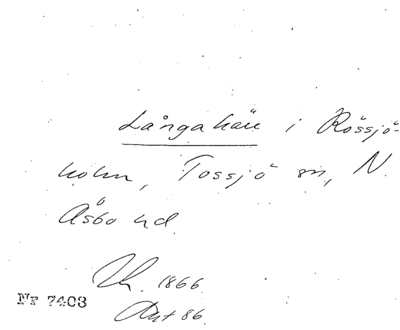 Långakärr i Rössjö-
holm, Tossjö sn, N
Åsbo hd.
1866
Ant 86
Nr 7403